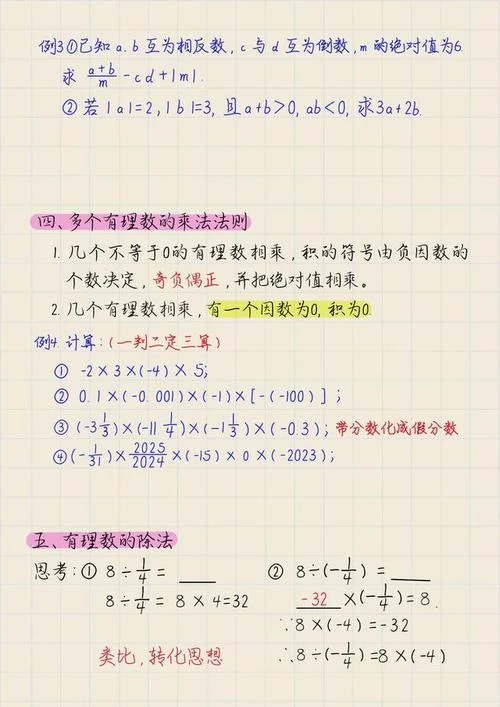 例3①已知a.b互为相反数,c与d互为倒数,m的绝对值为6.
求 (a+b)/m -cd+|m|.
②若|a|=2,|b|=3,且a+b>0,ab<0,求3a+2b.
四、多个有理数的乘法法则
1. 几个不等于0的有理数相乘,积的符号由负因数的
个数决定,奇负偶正,并把绝对值相乘。
2. 几个有理数相乘,有一个因数为0,积为0.
例4. 计算:(一判二定三算)
① -2×3×(-4)×5;
② 0.1×(-0.001)×(-1)×[-(-100)];
③ (-3 1/3)×(-11 1/4)×(-1 1/3)×(-0.3); 带分数化成假分数
④(-1/31)×2025/2024×(-15)×0×(-2023);
五、有理数的除法
思考:① 8÷1/4= ___ ② 8÷(-1/4)= ___
8÷1/4= 8×4=32 -32 ×(-1/4)=8.
∵8×(-4)=-32
类比,转化思想 ∴8÷(-1/4)=8×(-4)